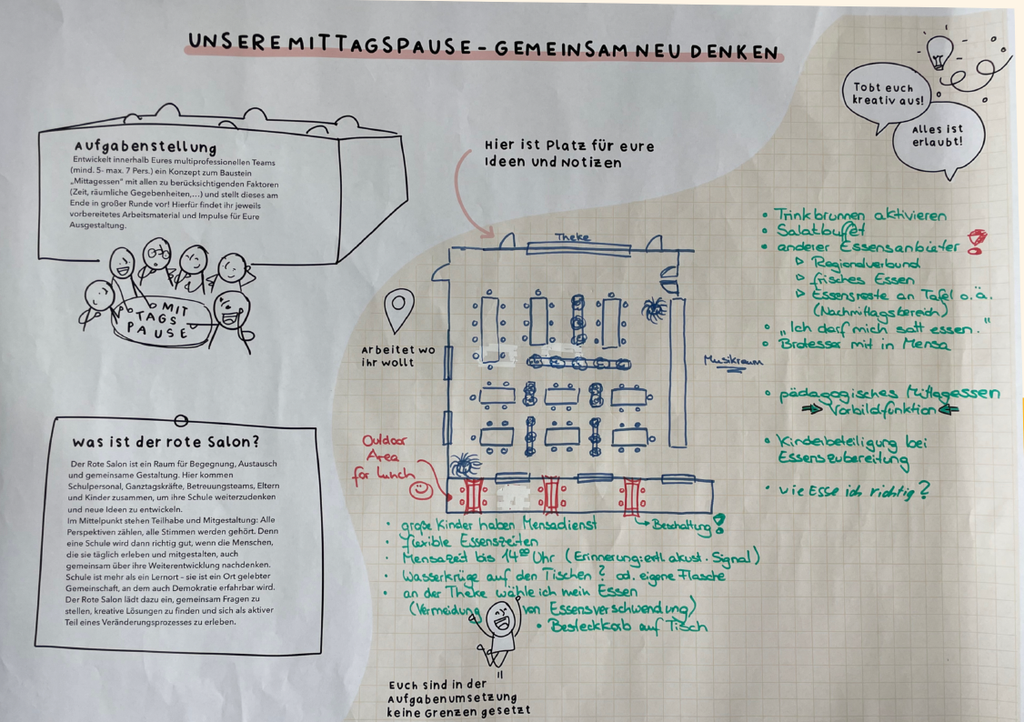 UNSERE MITTAGSPAUSE - GEMEINSAM NEU DENKEN
Tobt euch
kreativ aus!
Alles ist
erlaubt!
Aufgabenstellung
Entwickelt innerhalb Eures multiprofessionellen Teams
(mind. 5- max. 7 Pers.) ein Konzept zum Baustein
„Mittagessen" mit allen zu berücksichtigenden Faktoren
(Zeit, räumliche Gegebenheiten,...) und stellt dieses am
Ende in großer Runde vor! Hierfür findet ihr jeweils
vorbereitetes Arbeitsmaterial und Impulse für Eure
Ausgestaltung.
MIT
TAGS
PAUSE
Hier ist Platz für eure
Ideen und Notizen
Theke
Arbeitet wo
ihr wollt
Musikraum
Outdoor
Area
for Lunch
Beschattung!
• Trinkbrunnen aktivieren
• Salatbuffet
• anderer Essensanbieter !
▷ Regionalverbund
▷ frisches Essen
▷ Essensreste an Tafel o.ä.
(Nachmittagsbereich)
• „Ich darf mich satt essen."
• Brotesser mit in Mensa
• pädagogisches Mittagessen
Vorbildfunktion
• Kinderbeteiligung bei
Essenszubereitung
• Wie Esse ich richtig?
Was ist der rote Salon?
Der Rote Salon ist ein Raum für Begegnung, Austausch
und gemeinsame Gestaltung. Hier kommen
Schulpersonal, Ganztagskräfte, Betreuungsteams, Eltern
und Kinder zusammen, um ihre Schule weiterzudenken
und neue Ideen zu entwickeln.
Im Mittelpunkt stehen Teilhabe und Mitgestaltung: Alle
Perspektiven zählen, alle Stimmen werden gehört. Denn
eine Schule wird dann richtig gut, wenn die Menschen,
die sie täglich erleben und mitgestalten, auch
gemeinsam über ihre Weiterentwicklung nachdenken.
Schule ist mehr als ein Lernort - sie ist ein Ort gelebter
Gemeinschaft, an dem auch Demokratie erfahrbar wird.
Der Rote Salon lädt dazu ein, gemeinsam Fragen zu
stellen, kreative Lösungen zu finden und sich als aktiver
Teil eines Veränderungsprozesses zu erleben.
• große Kinder haben Mensadienst
• flexible Essenszeiten
• Mensazeit bis 14⁰⁰ Uhr (Erinnerung: evtl. akust. Signal)
• Wasserkrüge auf den Tischen? od. eigene Flasche
• an der Theke wähle ich mein Essen
(Vermeidung von Essensverschwendung)
• Besteckkorb auf Tisch
Euch sind in der
Aufgabenumsetzung
keine Grenzen gesetzt